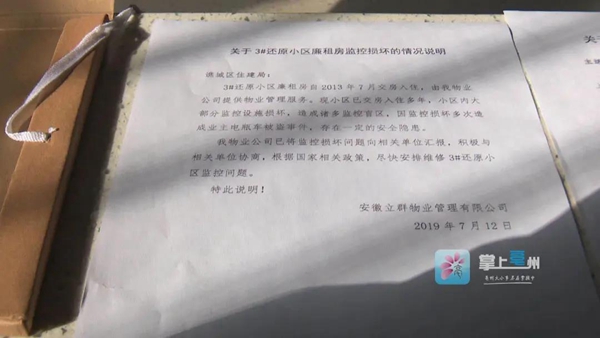 关于 3#还原小区廉租房监控损坏的情况说明
谯城区住建局：
3#还原小区廉租房自 2013 年 7 月交房入住，由我物业
公司提供物业管理服务。现小区已交房入住多年，小区内大
部分监控设施损坏，造成诸多监控盲区，因监控损坏多次造
成业主电瓶车被盗事件，存在一定的安全隐患。
我物业公司已将监控损坏问题向相关单位汇报，积极与
相关单位协商，根据国家相关政策，尽快安排维修 3#还原小
区监控问题。
特此说明！
安徽立群物业管理有限公司
2019 年 7 月 12 日
掌上亳州